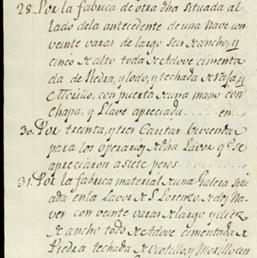 28. Por la fabrica de otra dha situada al
lado dela antecedente de una nave con
veinte varas de largo seis de ancho, y
cinco de alto toda de Adove cimenta
da de Piedra, y lodo, y techada de Vigas, y
Morillo, con puerta de una mano con
chapa, y Llave apreciada .... en
30. Por treinta, y tres Cantar
para los operarios de dha Lavor q.e se
apreciaron a siete pesos
31. Por la fabrica material de una Galera situ
ada en la Lavor de S. Lorenzo de
ver con veinte varas de largo y diez
de ancho todo de Adove cimentada de
Piedra techada de Morillo con